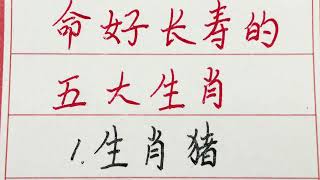 命好长寿的
五大生肖
1.生肖猪